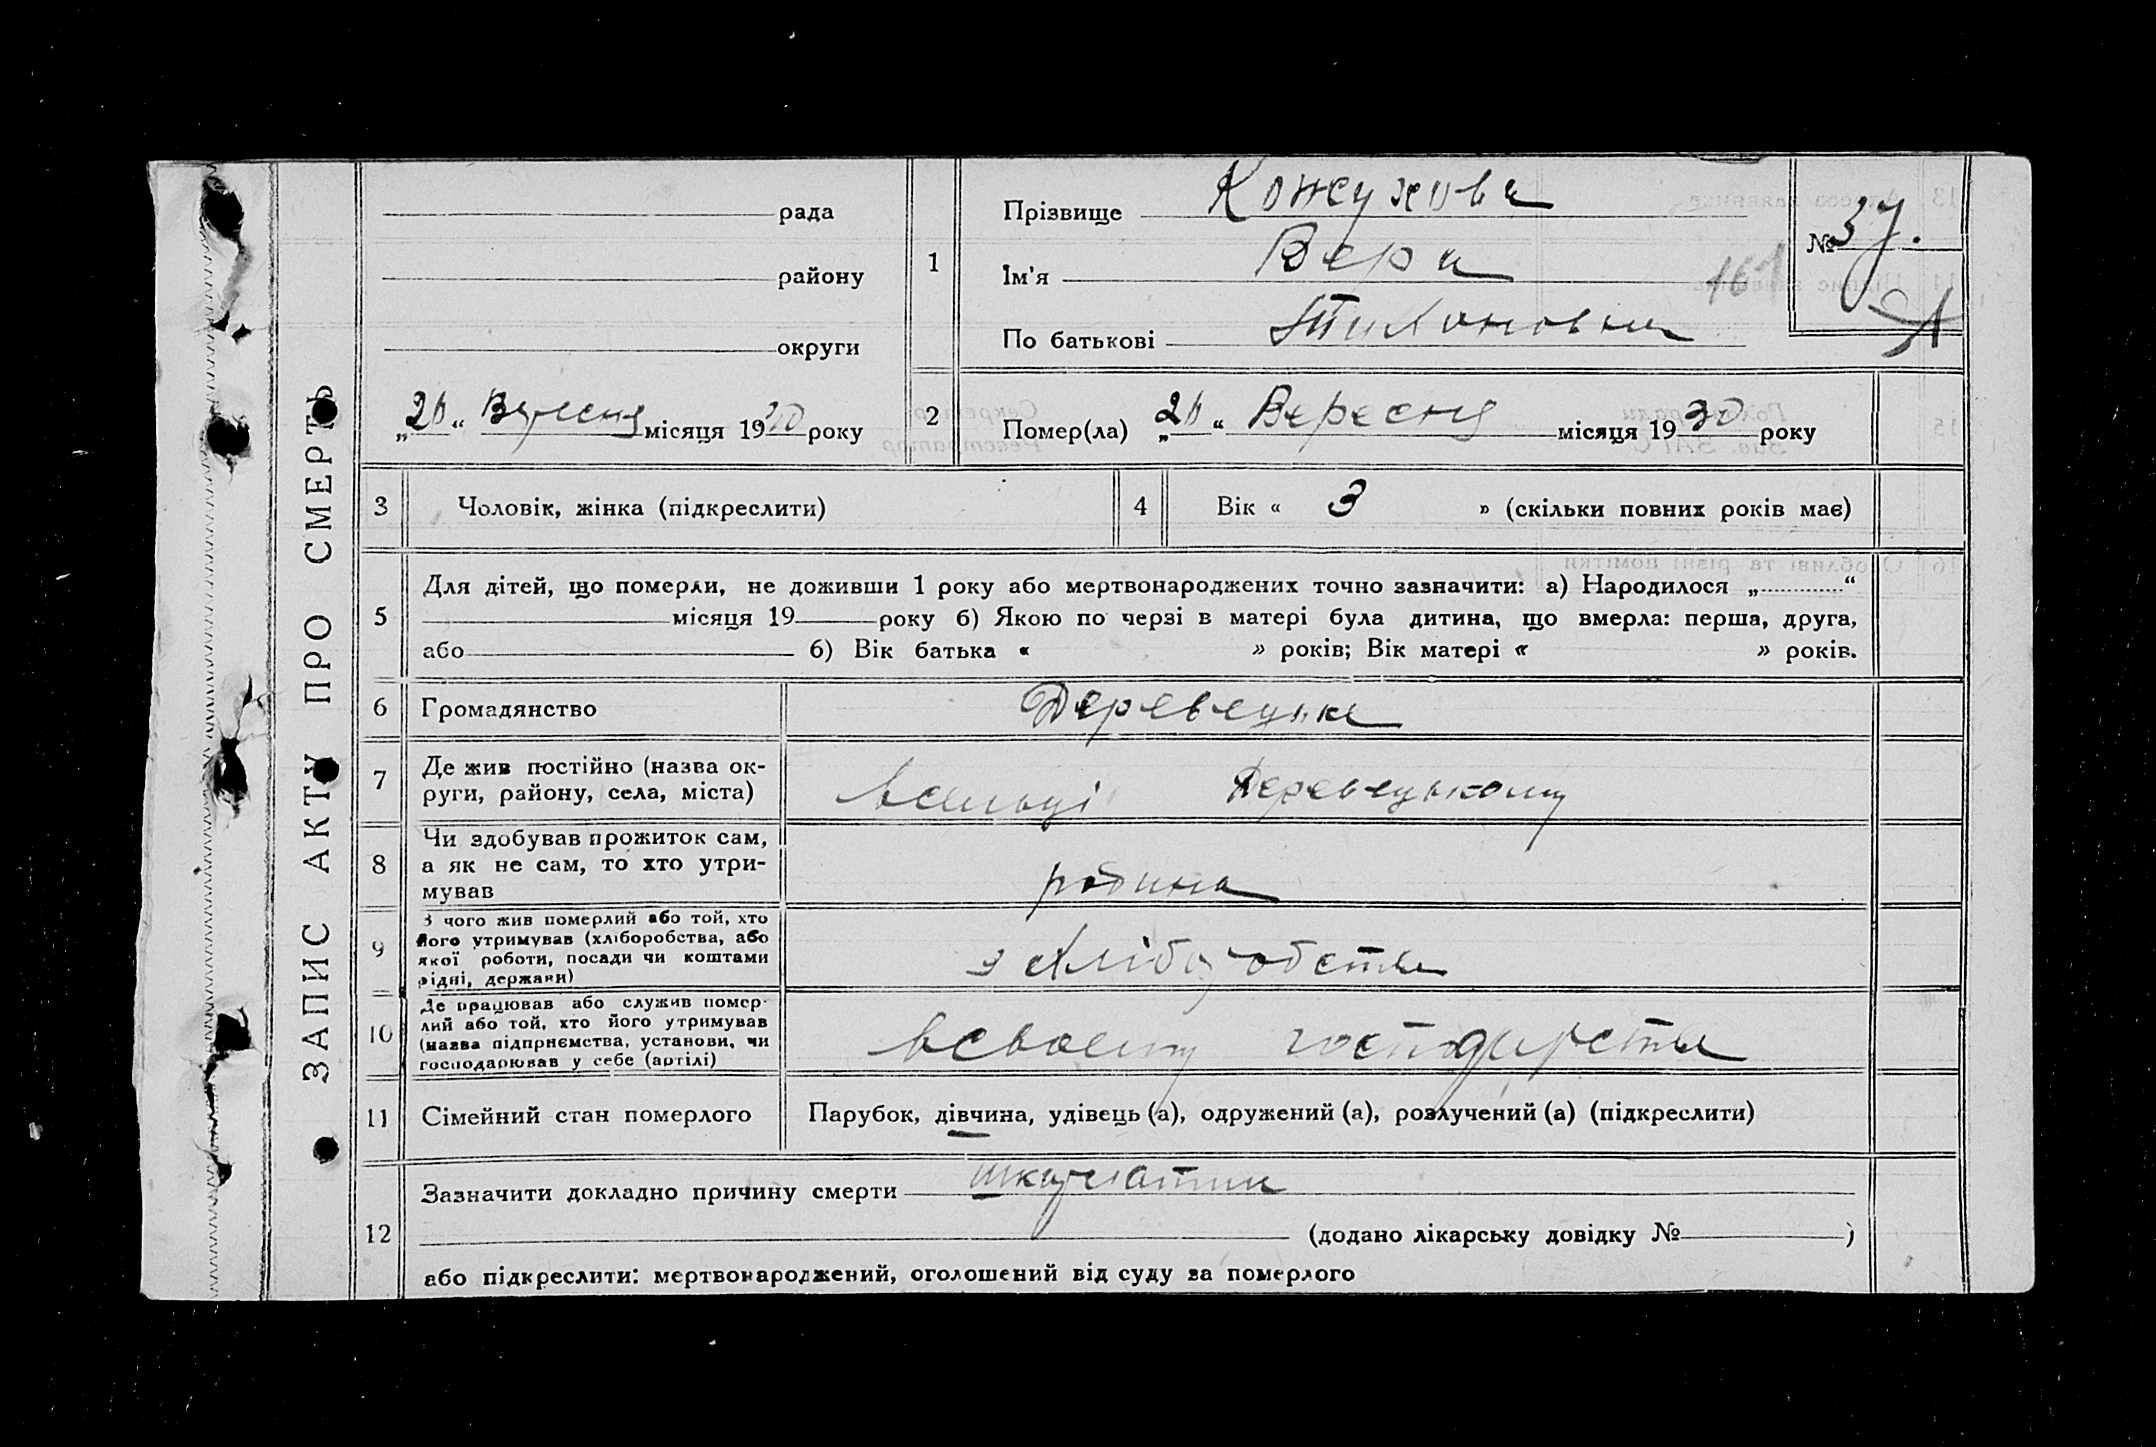 ЗАПИС АКТУ ПРО СМЕРТЬ
рада
району
округи
„20“ Вересня місяця 1930 року
1
Прізвище Кожухова
Ім'я Вера
По батькові Тихоновна
161
№ 37.
2
Помер(ла) „20“ Вересня місяця 1930 року
3
Чоловік, жінка (підкреслити)
4
Вік « 3 » (скільки повних років має)
5
Для дітей, що померли, не доживши 1 року або мертвонароджених точно зазначити: а) Народилося „ “
місяця 19 року б) Якою по черзі в матері була дитина, що вмерла: перша, друга,
або б) Вік батька « » років; Вік матері « » років.
6
Громадянство Деревецьке
7
Де жив постійно (назва ок-
руги, району, села, міста)
в сельці Деревецькому
8
Чи здобував прожиток сам,
а як не сам, то хто утри-
мував
родина
9
З чого жив померлий або той, хто
його утримував (хліборобства, або
якої роботи, посади чи коштами
рідні, держави)
з хліборобства
10
Де працював або служив помер-
лий або той, хто його утримував
(назва підприємства, установи, чи
господарював у себе (артілі)
в своему господарстві
11
Сімейний стан померлого
Парубок, дівчина, удівець (а), одружений (а), розлучений (а) (підкреслити)
12
Зазначити докладно причину смерти шкарлатина
(додано лікарську довідку № )
або підкреслити: мертвонароджений, оголошений від суду за померлого